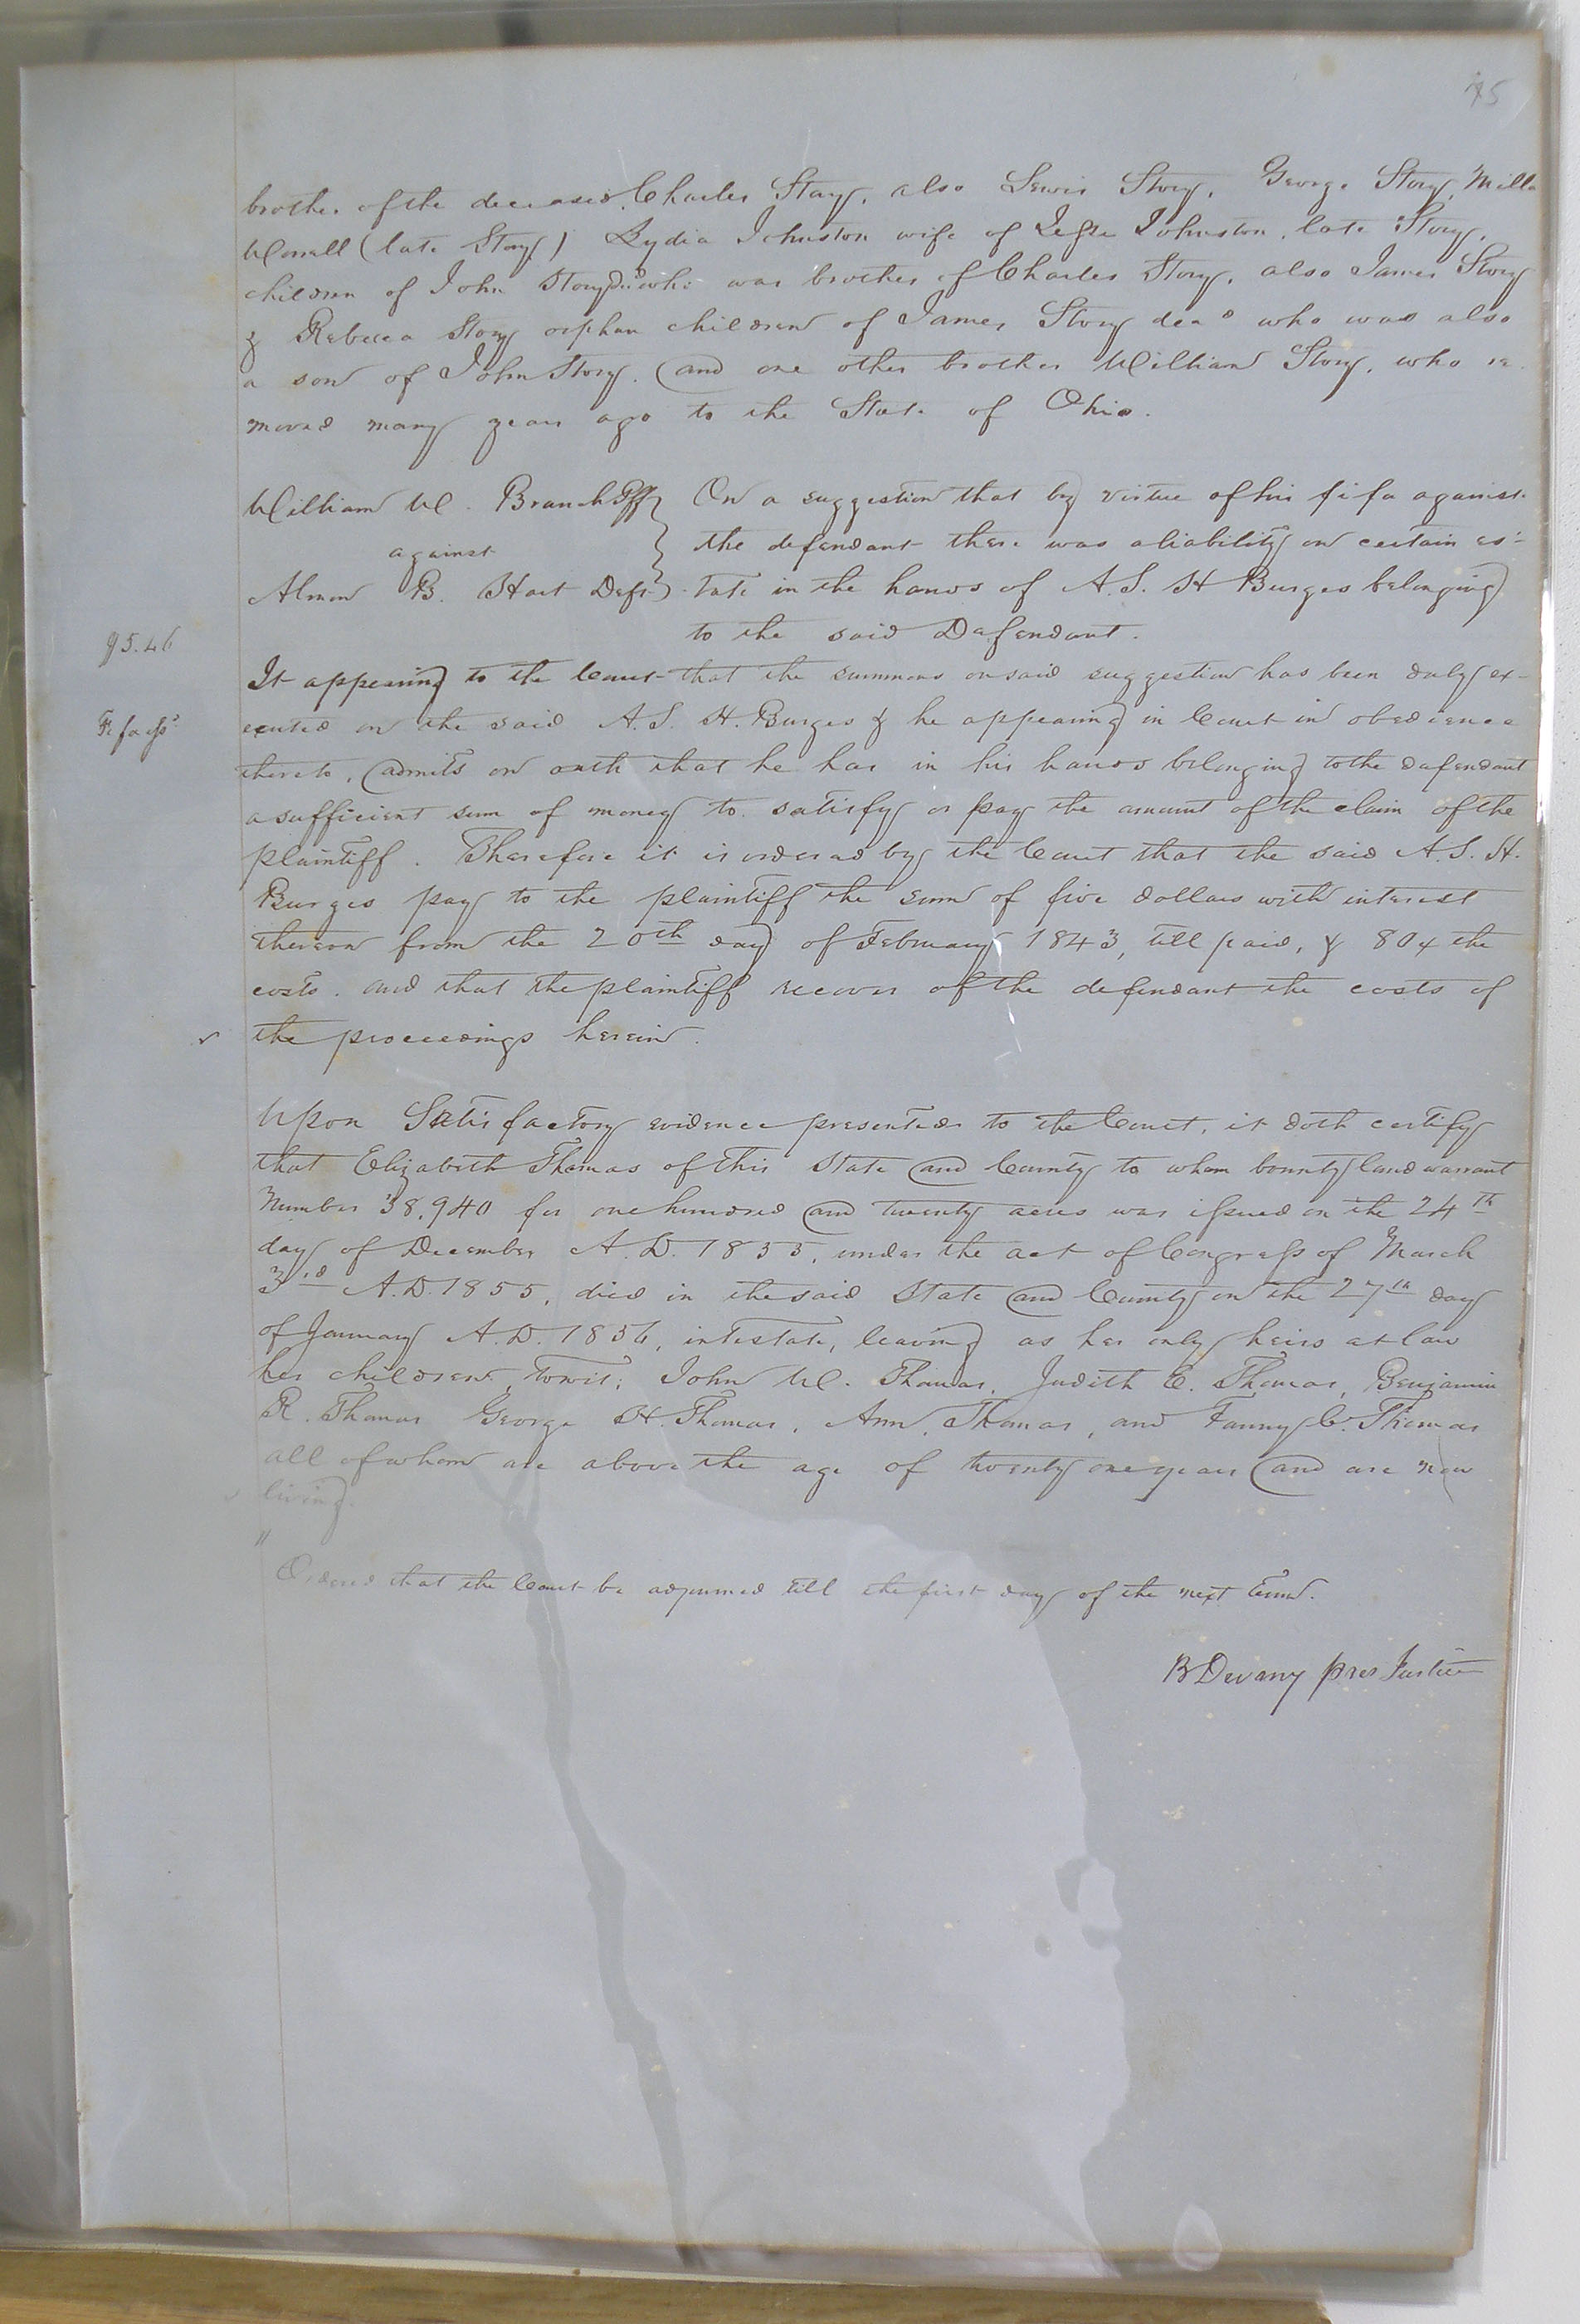 75
brother of the deceased Charles Story, also Lewis Story, George Story, Milla
Worrall (late Story) Lydia Johnston wife of Jesse Johnston, late Story,
children of John Story Dd who was brother of Charles Story, also James Story
& Rebecca Story orphan children of James Story decd who was also
a son of John Story. and one other brother William Story, who re
moved many years ago to the State of Ohio.
William W. Branch Plff } On a suggestion that by virtue of his fi fa against
against } the defendant there was a liability on certain es-
Almon B. Hart Deft } tate in the hands of A. S. H Burges belonging
to the said Defendant.
95.46
It appearing to the Court that the summons on said suggestion has been duly ex-
Fi fa issd
ecuted on the said A. S. H. Burges & he appearing in Court in obedience
thereto, admits on oath that he has in his hands belonging to the defendant
a sufficient sum of money to satisfy or pay the amount of the claim of the
plaintiff. Therefore it is ordered by the Court that the said A. S. H.
Burges pay to the plaintiff the sum of five dollars with interest
thereon from the 20th day of February 1843, till paid, & 80¢ the
costs. and that the plaintiff recover of the defendant the costs of
the proceedings herein.
Upon Satisfactory evidence presented to the Court, it doth certify
that Elizabeth Thomas of this State and County to whom bounty land warrant
Number 38,940 for one hundred and twenty acres was issued on the 24th
day of December A. D. 1855, under the act of Congress of March
3rd A. D. 1855, died in the said State and County on the 27th day
of January A. D. 1856, intestate, leaving as her only heirs at law
her children, towit: John W. Thomas, Judith E. Thomas, Benjamin
R. Thomas George H. Thomas, Ann Thomas, and Fanny C. Thomas
all of whom are above the age of twenty one years and are now
living.
Ordered that the Court be adjourned till the first day of the next term.
B Devany pres Justice